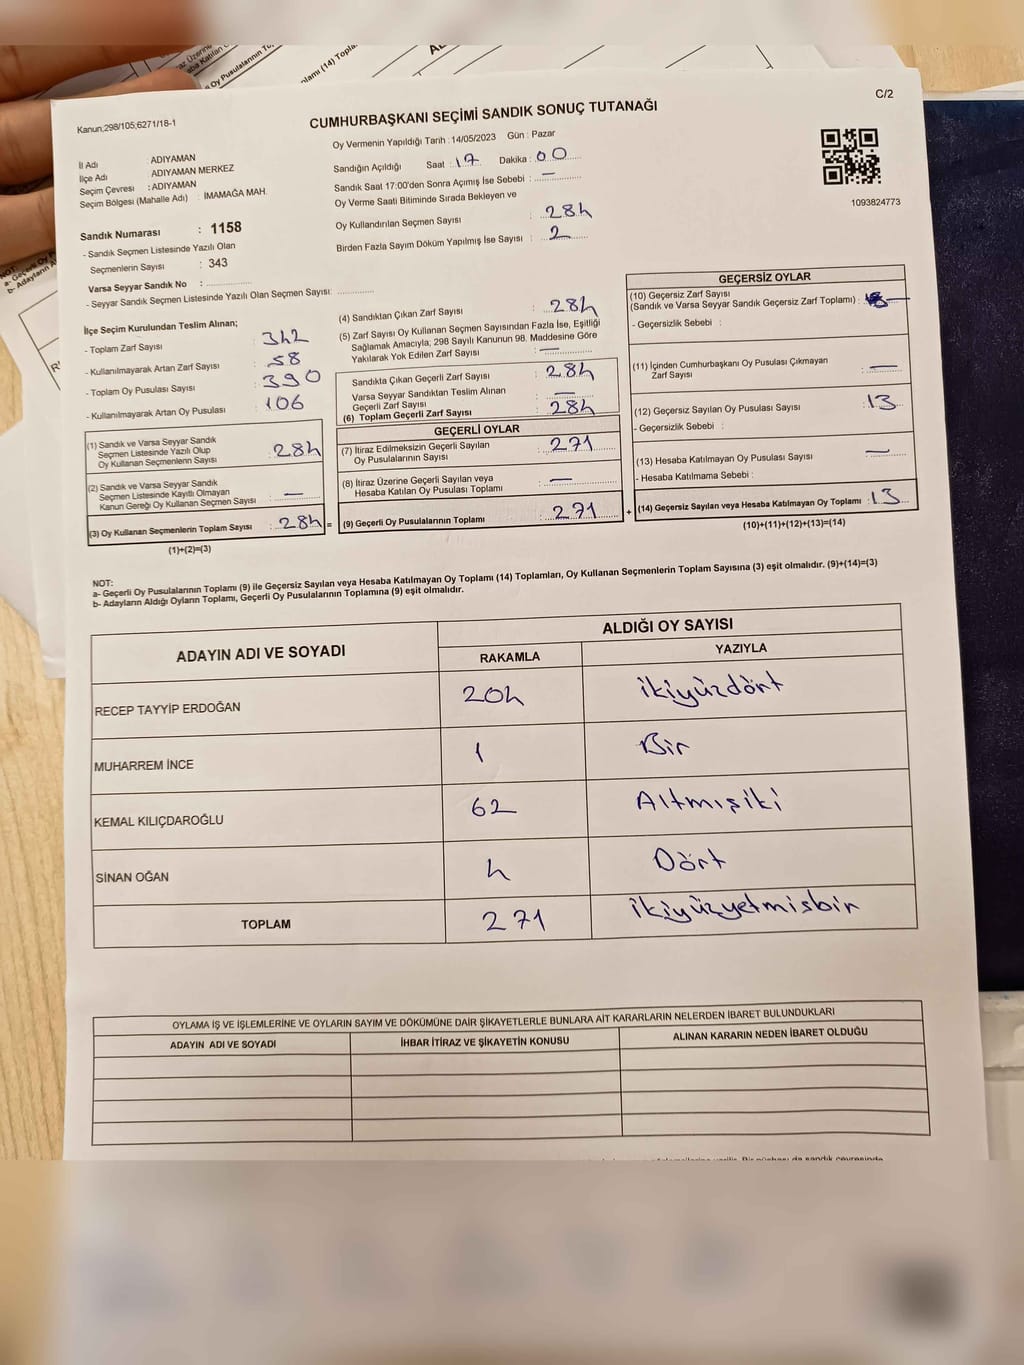 Kanun;298/105;6271/18-1
CUMHURBAŞKANI SEÇİMİ SANDIK SONUÇ TUTANAĞI
C/2
İl Adı ADIYAMAN
İlçe Adı : ADIYAMAN MERKEZ
Seçim Çevresi : ADIYAMAN
Seçim Bölgesi (Mahalle Adı) : İMAMAĞA MAH.
Sandık Numarası : 1158
- Sandık Seçmen Listesinde Yazılı Olan
Seçmenlerin Sayısı : 343
Varsa Seyyar Sandık No :
- Seyyar Sandık Seçmen Listesinde Yazılı Olan Seçmen Sayısı:
Oy Vermenin Yapıldığı Tarih : 14/05/2023 Gün : Pazar
Sandığın Açıldığı Saat : 17 Dakika : 00
Sandık Saat 17:00'den Sonra Açımış İse Sebebi : —
Oy Verme Saati Bitiminde Sırada Bekleyen ve
Oy Kullandırılan Seçmen Sayısı : 284
Birden Fazla Sayım Döküm Yapılmış İse Sayısı : 2
1093824773
İlçe Seçim Kurulundan Teslim Alınan;
- Toplam Zarf Sayısı : 342
- Kullanılmayarak Artan Zarf Sayısı : 58
- Toplam Oy Pusulası Sayısı : 390
- Kullanılmayarak Artan Oy Pusulası : 106
(1) Sandık ve Varsa Seyyar Sandık
Seçmen Listesinde Yazılı Olup
Oy Kullanan Seçmenlerin Sayısı : 284
(2) Sandık ve Varsa Seyyar Sandık
Seçmen Listesinde Kayıtlı Olmayan
Kanun Gereği Oy Kullanan Seçmen Sayısı : —
(3) Oy Kullanan Seçmenlerin Toplam Sayısı : 284 =
(1)+(2)=(3)
(4) Sandıktan Çıkan Zarf Sayısı : 284
(5) Zarf Sayısı Oy Kullanan Seçmen Sayısından Fazla İse, Eşitliği
Sağlamak Amacıyla; 298 Sayılı Kanunun 98. Maddesine Göre
Yakılarak Yok Edilen Zarf Sayısı : —
Sandıkta Çıkan Geçerli Zarf Sayısı : 284
Varsa Seyyar Sandıktan Teslim Alınan
Geçerli Zarf Sayısı : —
(6) Toplam Geçerli Zarf Sayısı : 284
GEÇERLİ OYLAR
(7) İtiraz Edilmeksizin Geçerli Sayılan
Oy Pusulalarının Sayısı : 271
(8) İtiraz Üzerine Geçerli Sayılan veya
Hesaba Katılan Oy Pusulası Toplamı : —
(9) Geçerli Oy Pusulalarının Toplamı : 271 +
GEÇERSİZ OYLAR
(10) Geçersiz Zarf Sayısı
(Sandık ve Varsa Seyyar Sandık Geçersiz Zarf Toplamı) : —
- Geçersizlik Sebebi :
(11) İçinden Cumhurbaşkanı Oy Pusulası Çıkmayan
Zarf Sayısı : —
(12) Geçersiz Sayılan Oy Pusulası Sayısı : 13
- Geçersizlik Sebebi :
(13) Hesaba Katılmayan Oy Pusulası Sayısı : —
- Hesaba Katılmama Sebebi :
(14) Geçersiz Sayılan veya Hesaba Katılmayan Oy Toplamı : 13
(10)+(11)+(12)+(13)=(14)
NOT:
a- Geçerli Oy Pusulalarının Toplamı (9) ile Geçersiz Sayılan veya Hesaba Katılmayan Oy Toplamı (14) Toplamları, Oy Kullanan Seçmenlerin Toplam Sayısına (3) eşit olmalıdır. (9)+(14)=(3)
b- Adayların Aldığı Oyların Toplamı, Geçerli Oy Pusulalarının Toplamına (9) eşit olmalıdır.
ADAYIN ADI VE SOYADI ALDIĞI OY SAYISI
RAKAMLA YAZIYLA
RECEP TAYYİP ERDOĞAN 204 ikiyüzdört
MUHARREM İNCE 1 Bir
KEMAL KILIÇDAROĞLU 62 Altmışiki
SİNAN OĞAN 4 Dört
TOPLAM 271 ikiyüzyetmisbir
OYLAMA İŞ VE İŞLEMLERİNE VE OYLARIN SAYIM VE DÖKÜMÜNE DAİR ŞİKAYETLERLE BUNLARA AİT KARARLARIN NELERDEN İBARET BULUNDUKLARI
ADAYIN ADI VE SOYADI İHBAR İTİRAZ VE ŞİKAYETİN KONUSU ALINAN KARARIN NEDEN İBARET OLDUĞU